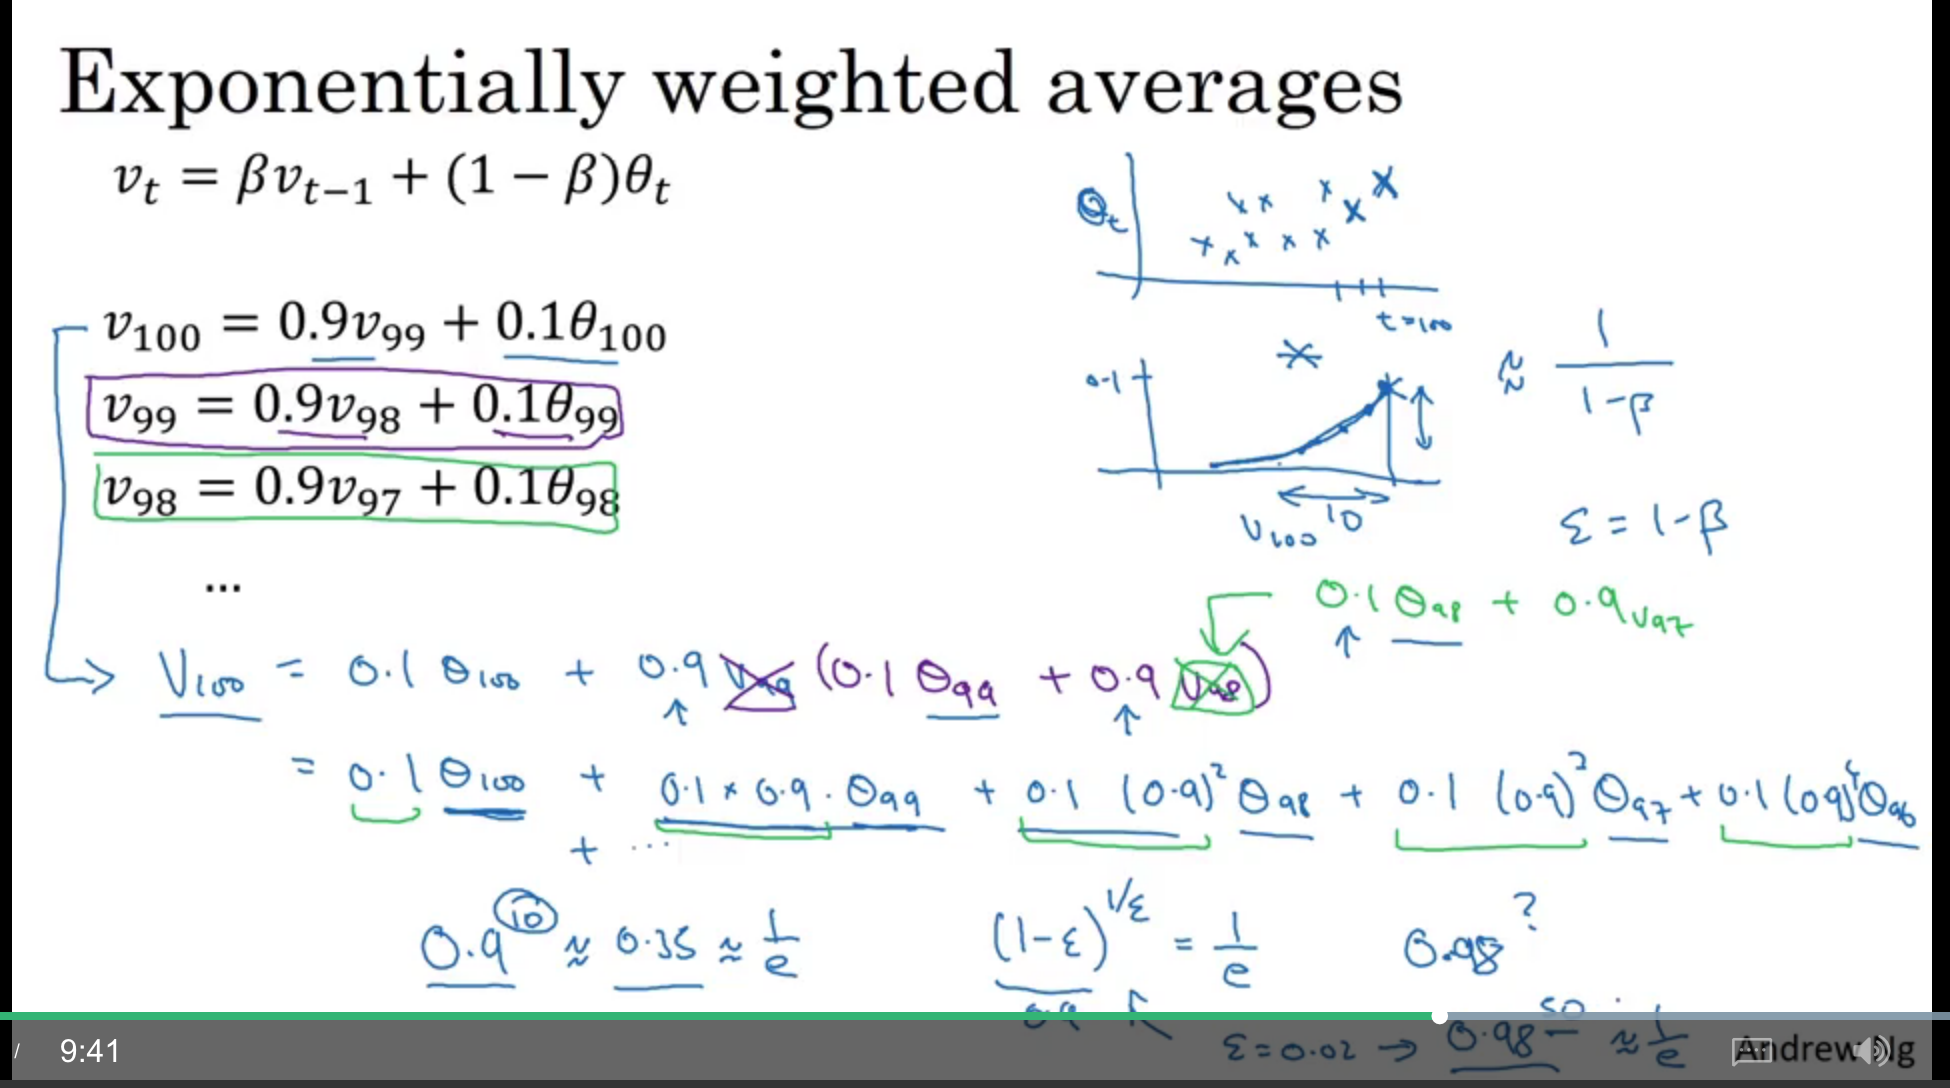 Exponentially weighted averages
v_t = βv_{t-1} + (1 − β)θ_t
θ_t
t=100
v_100 = 0.9v_99 + 0.1θ_100
v_99 = 0.9v_98 + 0.1θ_99
v_98 = 0.9v_97 + 0.1θ_98
...
0.1
≈ 1/(1-β)
10
V_100
ε = 1-β
0.1 θ_98 + 0.9 v_97
V_100 = 0.1 θ_100 + 0.9 v_99 (0.1 θ_99 + 0.9 v_98)
= 0.1 θ_100 + 0.1 × 0.9 · θ_99 + 0.1 (0.9)^2 θ_98 + 0.1 (0.9)^3 θ_97 + 0.1 (0.9)^4 θ_96
+ ...
0.9^10 ≈ 0.35 ≈ 1/e
(1-ε)^{1/ε} = 1/e
0.98^?
0.9
ε = 0.02 → 0.98^50 ≈ 1/e
/ 9:41
Andrew Ng